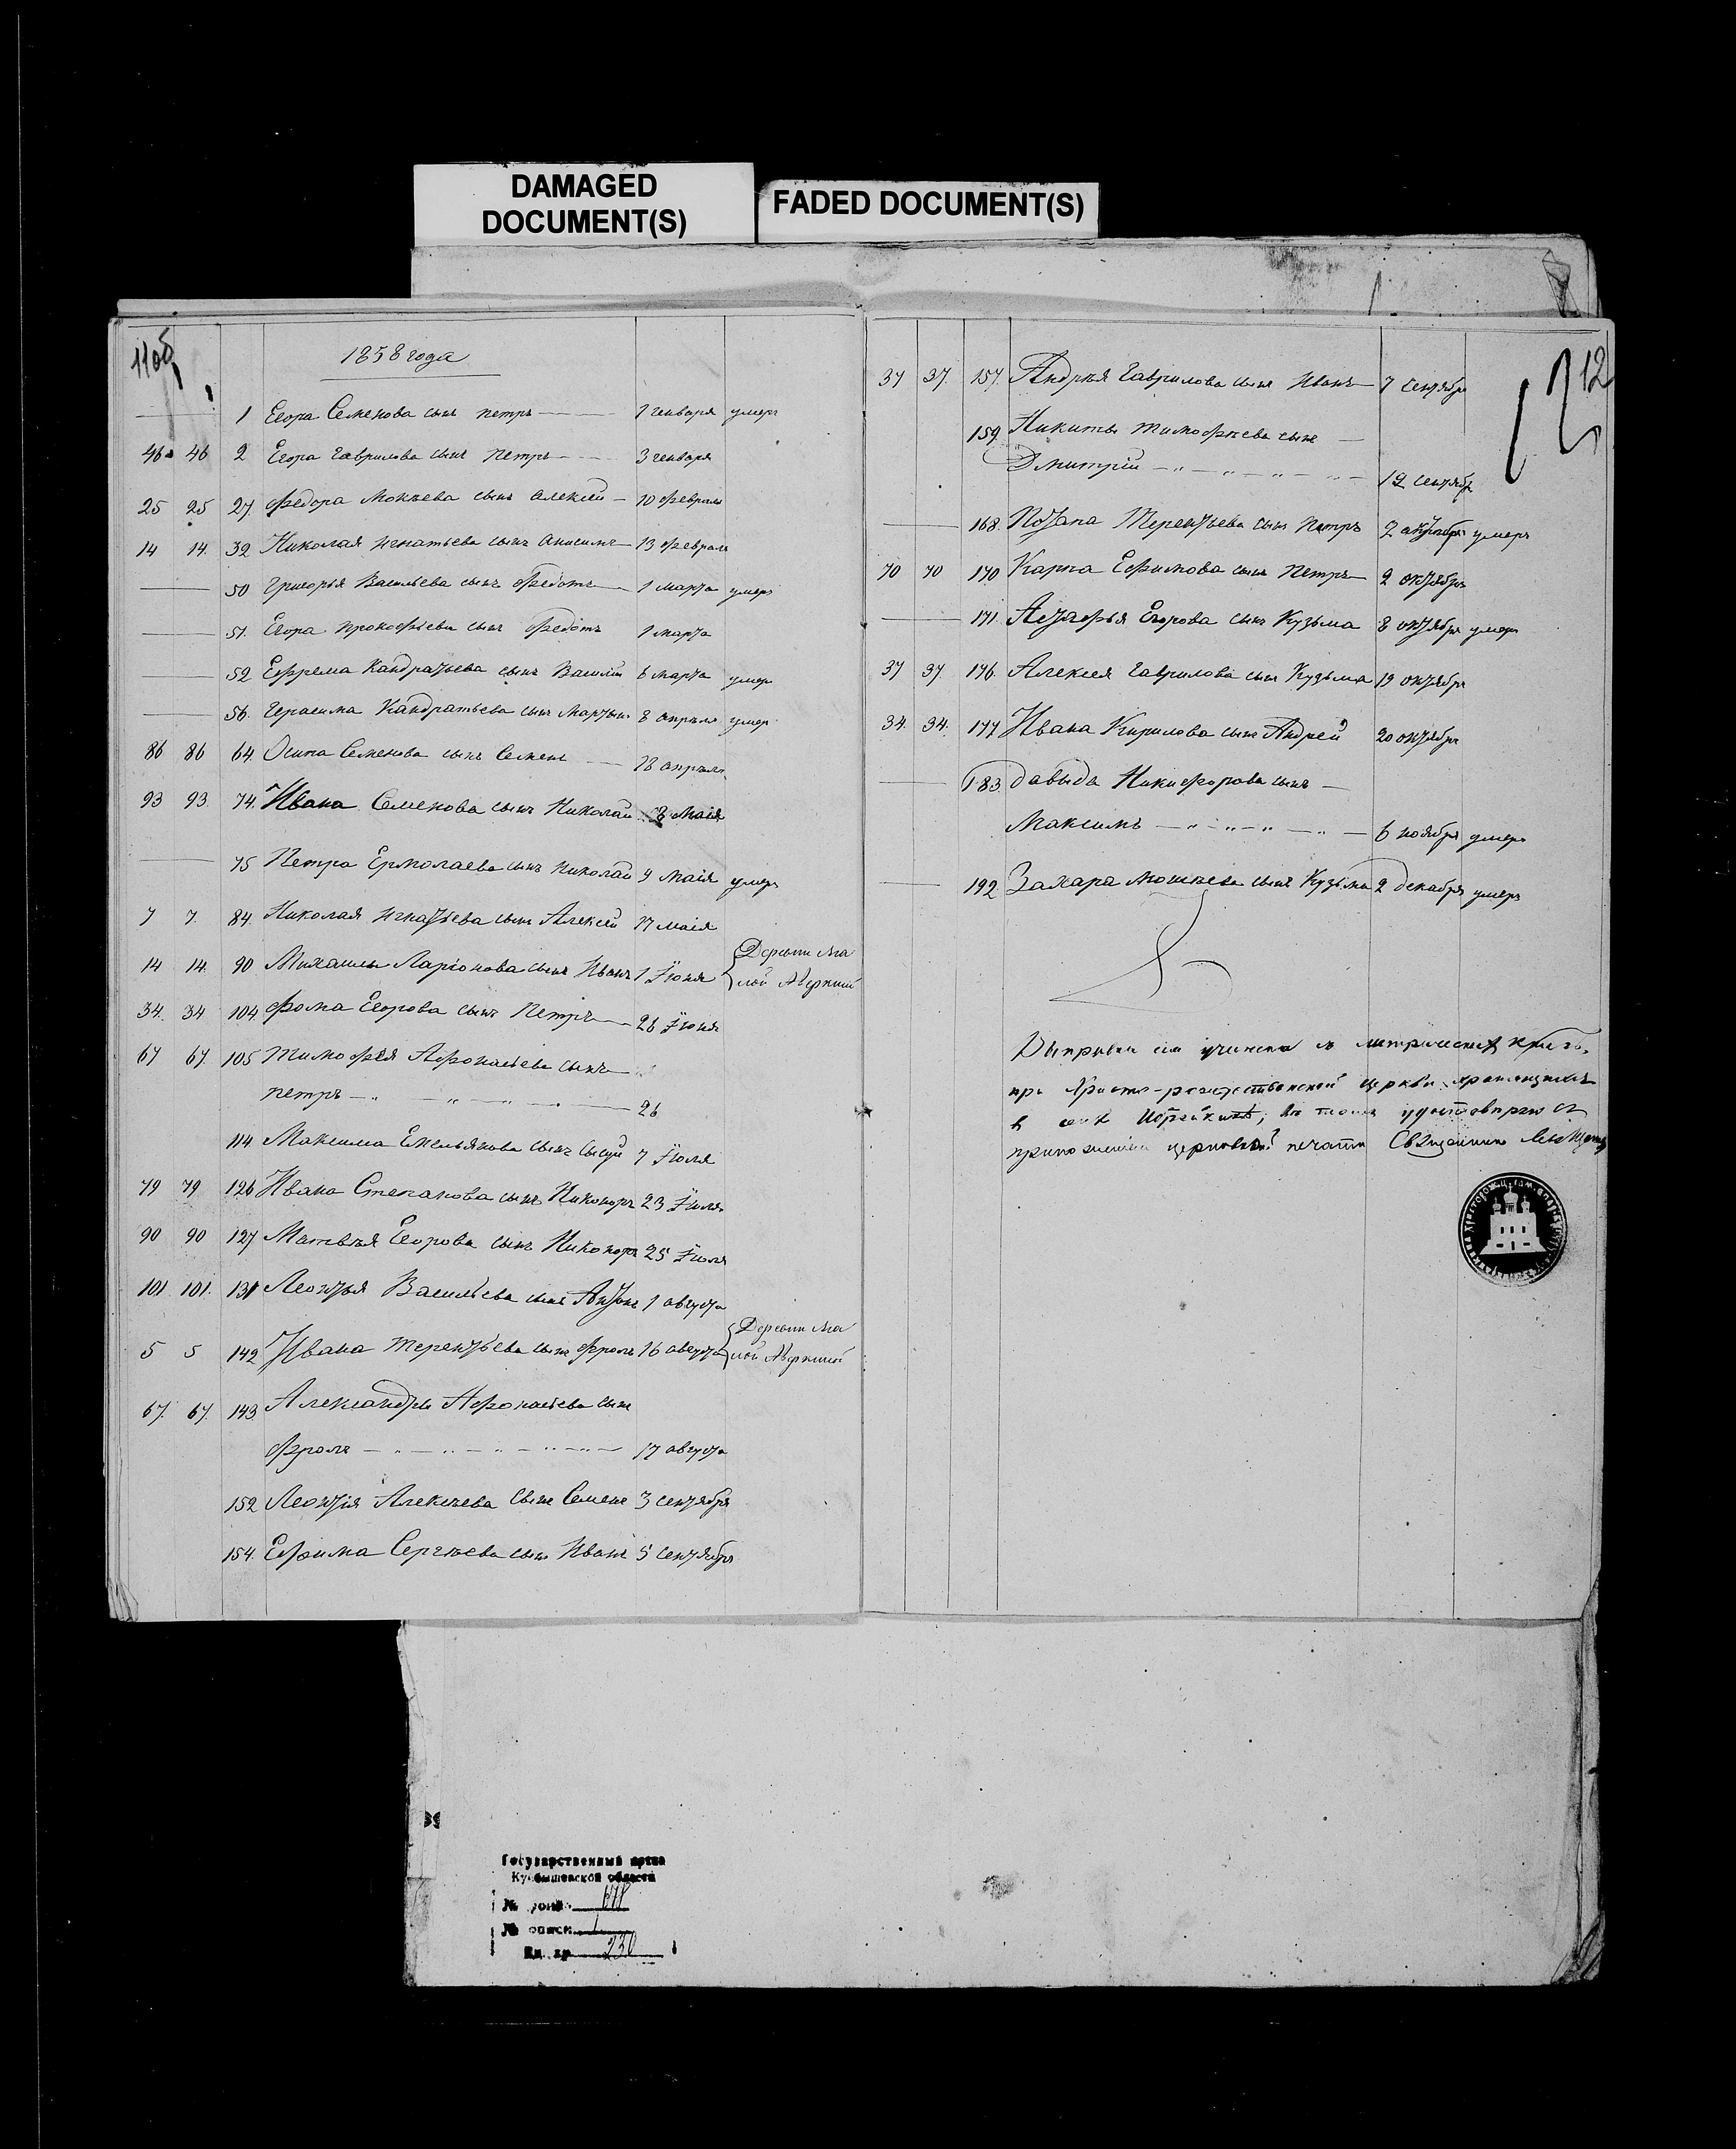 DAMAGED
DOCUMENT(S)
FADED DOCUMENT(S)
11об
1858 года
1 Егора Семенова сынъ петръ 1 генваря умеръ
46 46 2 Егора Гаврилова сынъ петръ 3 генваря
25 25 27. Федора Мокеева сынъ алексей 10 февраля
14 14. 32 Николая игнатьева сынъ анисимъ 13 февраля
50 Григорья Васильева сынъ Федотъ 1 марта умеръ
51. Егора прокофьева сынъ Федотъ 1 марта
52 Ефрема Кандратьева сынъ Василий 6 марта умер
56. Герасима Кандратьева сынъ Мартынъ 8 апреля умер
86 86 64. Осипа Семенова сынъ Семенъ 18 апреля
93 93. 74. Ивана Семенова сынъ Николай 8 Маія
75 Петра Ермолаева сынъ николай 9 Маія умеръ
7 7. 84. Николая игнатьева сынъ Алексей 17 маія
14 14. 90 Михаилы Ларіонова сынъ Иванъ 1 Іюня Деревни Ма
лой
34. 34 104. Фома Егорова сынъ Петръ 26 Іюня
67 67. 105 Тимофея Афонасьева сынъ
петръ 26
114. Максима Емельянова сынъ Сысуй 7 Іюля
79 79 126 Ивана Степанова сынъ Никоноръ 23 Іюля
90 90 127 Матвея Егорова сынъ Никоноръ 25 Іюля
101 101. 131 Леонтья Васильева сынъ Антонъ 1 августа
5 5 142 Ивана Терентьева сынъ Фролъ 16 августа Деревни Ма
лой
67. 67. 143. Александры Афонасьева сынъ
Фролъ 17 августа
152 Леонтія Алексеева сынъ Семенъ 3 сентября
154. Ефима Сергеева сынъ Иванъ 5 сентября
12
37 37. 157. Андрея Гаврилова сынъ Иванъ 7 сентября
159. Никиты тимофеева сынъ
Дмитрій 19 сентября
168. Потапа Терентьева сынъ Петръ 2 октября умеръ
70 70 170 Карпа Ефимова сынъ Петръ 2 октября
171. Егорова сынъ Кузьма 8 октября умеръ
37 37. 176. Алексея Гаврилова сынъ Кузьма 19 октября
34. 34. 177 Ивана Кирилова сынъ Андрей 20 октября
183 Давыда Никифорова сынъ
Максимъ 6 ноября умеръ
192 Захара Мокеева сынъ Кузьма 2 декабря умеръ
учинена
при Христо-рождественской церкви хранящихся
в
приложеніемъ церковной печати Священникъ
Государственный архив
Куйбышевской области
№ фонда
№ описи 1
Ед. хр. 230